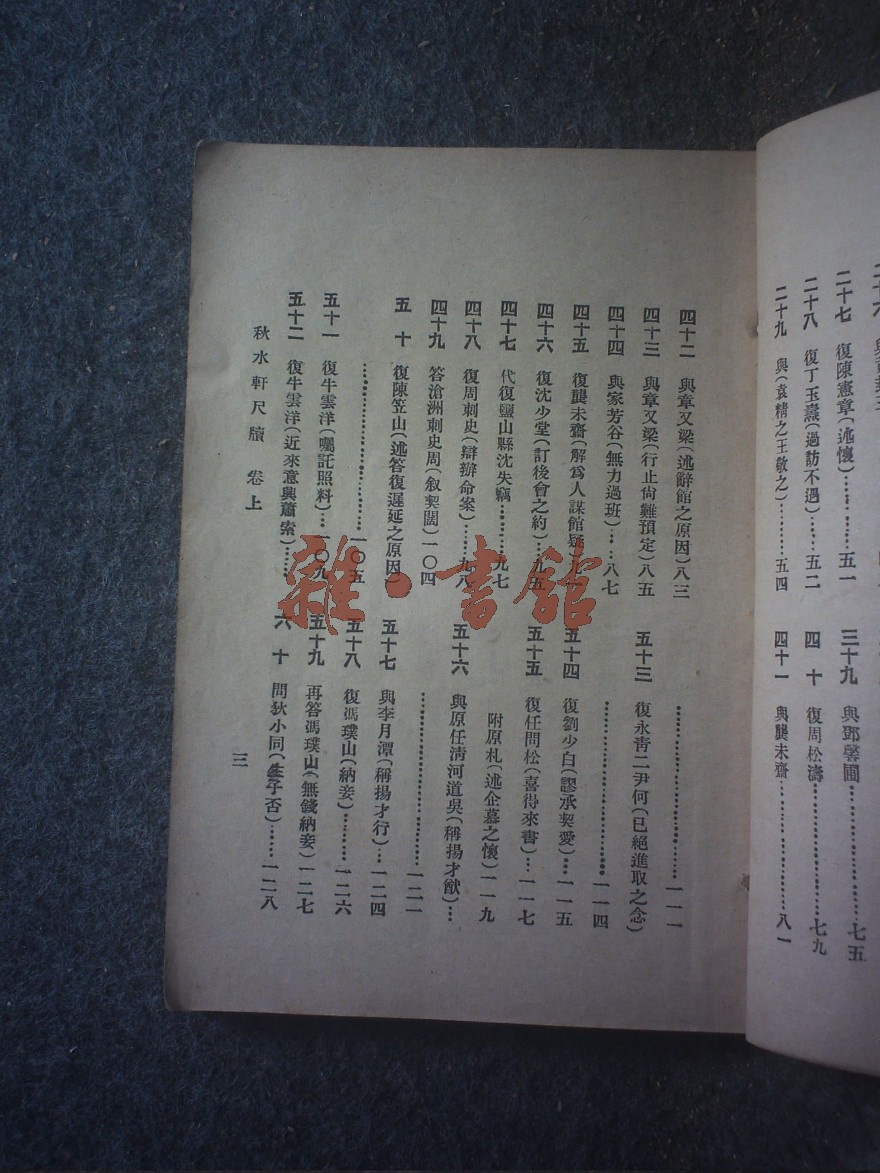 二十七 復陳憲章(述懷)……五一
二十八 復丁玉壽(過訪不遇)……五二
二十九 與(袁精之王敬之)……五四
三十九 與鄧馨圃……七五
四十 復周松濤……七九
四十一 與龔未齋……八一
四十二 與章又梁(述辭館之原因)八三
四十三 與章又梁(行止尙難預定)八五
四十四 與家芳谷(無力過班)…八七
四十五 復龔未齋(解爲人謀館疑)九一
四十六 復沈少堂(訂後會之約)…九五
四十七 代復靈山縣沈失竊……九七
四十八 復周刺史(辯辦命案)……九八
四十九 答滄洲刺史周(叙契闊)一〇四
五十 復陳笠山(述答復遲延之原因)
……一〇五
五十一 復牛雲洋(囑託照料)…一〇九
五十二 復牛雲洋(近來意興蕭索)……
……一一一
五十三 復永靑二尹何(已絕進取之念)
……一一四
五十四 復劉少白(謬承契愛)…一一五
五十五 復任問松(喜得來書)…一一七
附原札(述企慕之懷)一一九
五十六 與原任淸河道吳(稱揚才猷)…
……一二一
五十七 與李月潭(稱揚才行)…一二四
五十八 復馮璞山(納妾)……一二六
五十九 再答馮璞山(無錢納妾)一二七
六十 問狄小同(生子否)……一二八
秋水軒尺牘 卷上
三
雜·書館